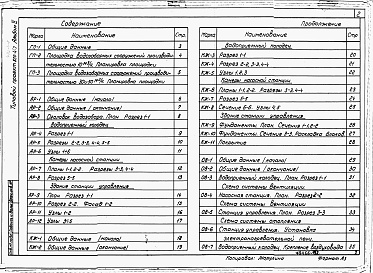 Содержание
Марка Наименование Стр
ГП-1 Общие данные 3
ГП-2 Площадка водозаборных сооружений производи-
тельностью Планировка площадки 4
ГП-3 Площадка водозаборных сооружений производи-
тельностью Планировка площадки 5
АР-1 Общие данные (начало) 6
АР-2 Общие данные (окончание)
АР-3 Оголовок водозабора. План Разрез 1-1 8
Водоприемный колодец
Разрез 1-1 9
АР-5 Разрезы 2-2, 3-3, 4-4 10
АР-6 Узлы 11
Камеры насосной станции.
АР-7 Планы 1-1, 2-2 Разрезы 3-3, 4-4 12
АР-8 Разрез 5-5 13
Здание станции управления
План Разрез 1-1 14
АР-10 Разрез 2-2. Фасад 1-2 15
АР-11 Узлы 1-2 16
АР-12 Узлы 17
КЖ-1 Общие данные (начало) 18
КЖ-2 Общие данные (окончание) 19
Продолжение
2
Марка Наименование Стр
Водоприемный колодец
КЖ-3 Разрез 1-1 20
КЖ-4 Разрезы 2-2, 3-3, 4-4 21
КЖ-5 Узлы 1, 2, 3 22
Камеры насосной станции.
Планы 1-1, 2-2 Разрезы 3-3, 4-4 23
КЖ-7 Разрез 5-5 24
КЖ-8 Сечение 6-6 Узлы 25
Здание станции управления
КЖ-9 Фундаменты План Сечения 1-1, 2-2 26
КЖ-10 Фундаменты Сечения 3-3. Раскладка блоков 27
КЖ-11 Покрытие 28
ОВ-1 Общие данные (начало) 29
ОВ-2 Общие данные (окончание) 30
ОВ-3 Водоприемный колодец. План Разрез 1-1 31
Схема системы вентиляции
ОВ-4 Насосная станция План. Разрез 2-2 32
Схема системы вентиляции
ОВ-5 Станция управления План Разрез 3-3 33
Схема системы отопления
ОВ-6 Станция управления. Установка 34
электронагревательной печи.
ОВ-7 Водоприемный колодец. Крепление воздуховода 35
Копировал Формат А3